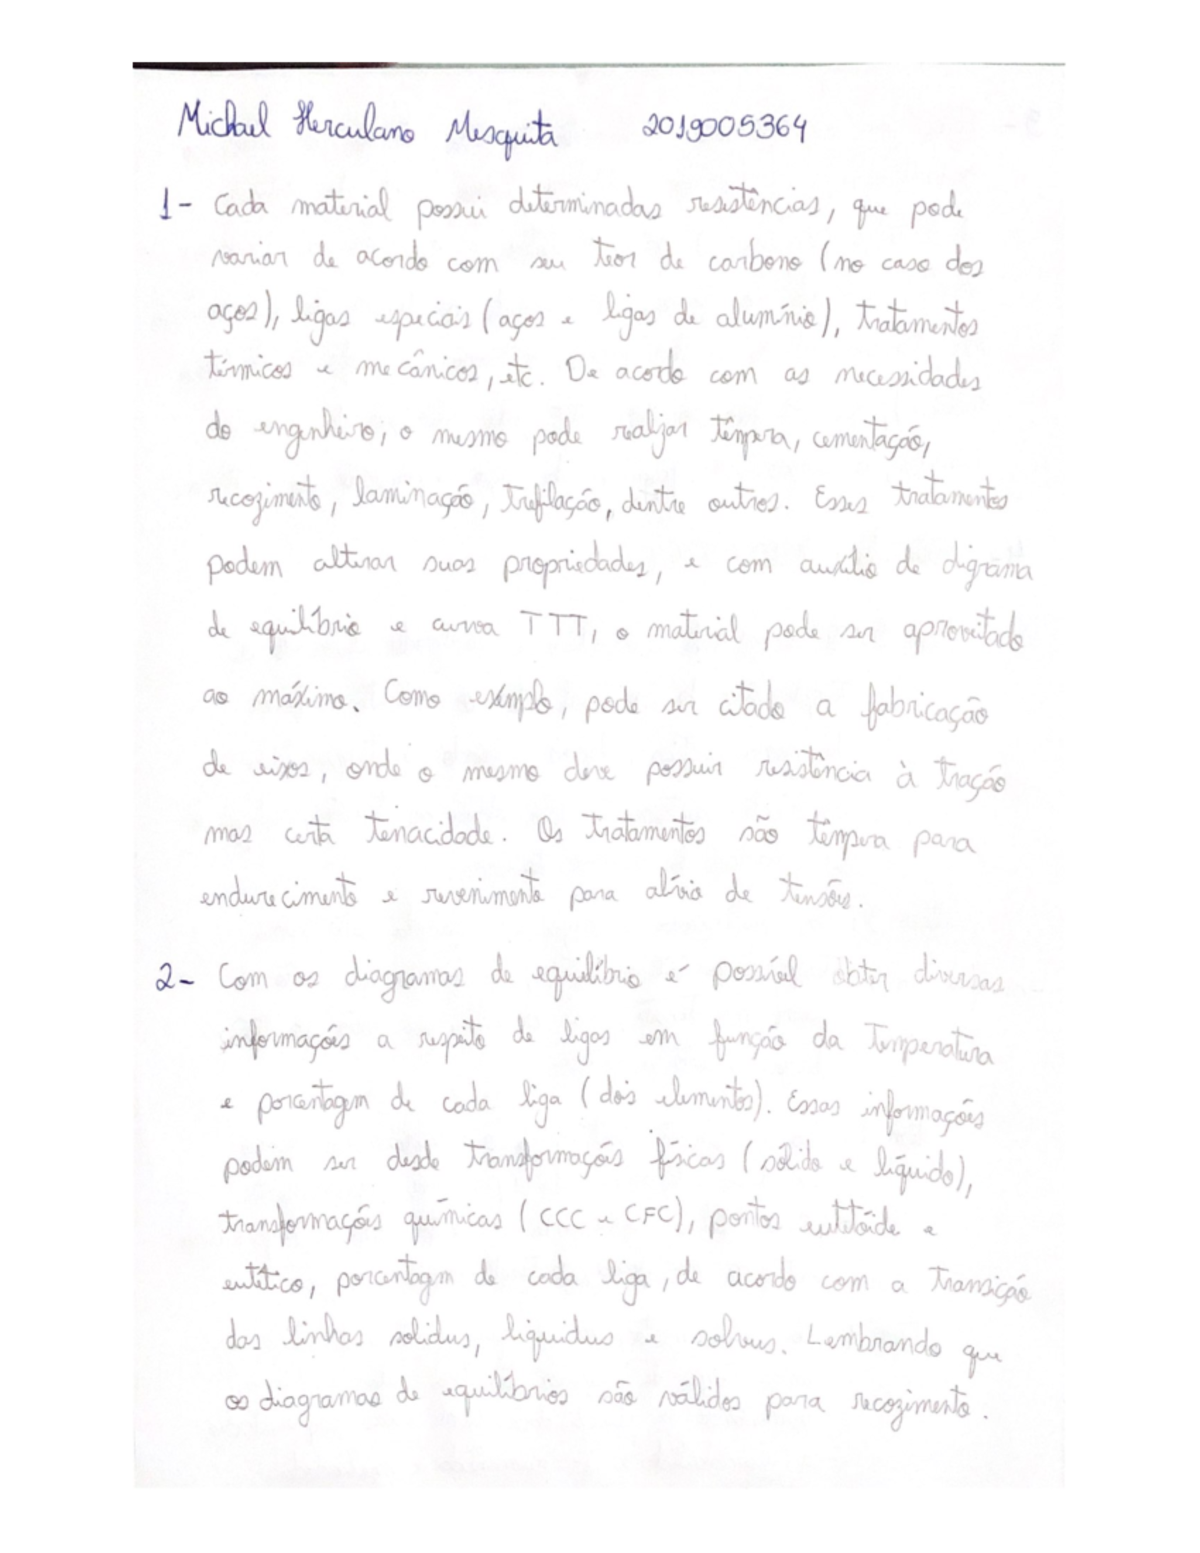 Michael Herculano Mesquita 2019005364
1- Cada material possui determinadas resistências, que pode
variar de acordo com seu teor de carbono (no caso dos
aços), ligas especiais (aços e ligas de alumínio), tratamentos
térmicos e mecânicos, etc. De acordo com as necessidades
do engenheiro, o mesmo pode realizar têmpera, cementação,
recozimento, laminação, trefilação, dentre outros. Esses tratamentos
podem alterar suas propriedades, e com auxílio de digrama
de equilíbrio e curva TTT, o material pode ser aproveitado
ao máximo. Como exemplo, pode ser citado a fabricação
de eixos, onde o mesmo deve possuir resistência à tração
mas certa tenacidade. Os tratamentos são têmpera para
endurecimento e revenimento para alívio de tensões.
2- Com os diagramas de equilíbrio é possível obter diversas
informações a respeito de ligas em função da Temperatura
e porcentagem de cada liga (dois elementos). Essas informações
podem ser desde transformações físicas (sólido e líquido),
transformações químicas (CCC e CFC), pontos eutetóide e
eutético, porcentagem de cada liga, de acordo com a transição
das linhas solidus, liquidus e solvus. Lembrando que
os diagramas de equilíbrios são válidos para recozimento.